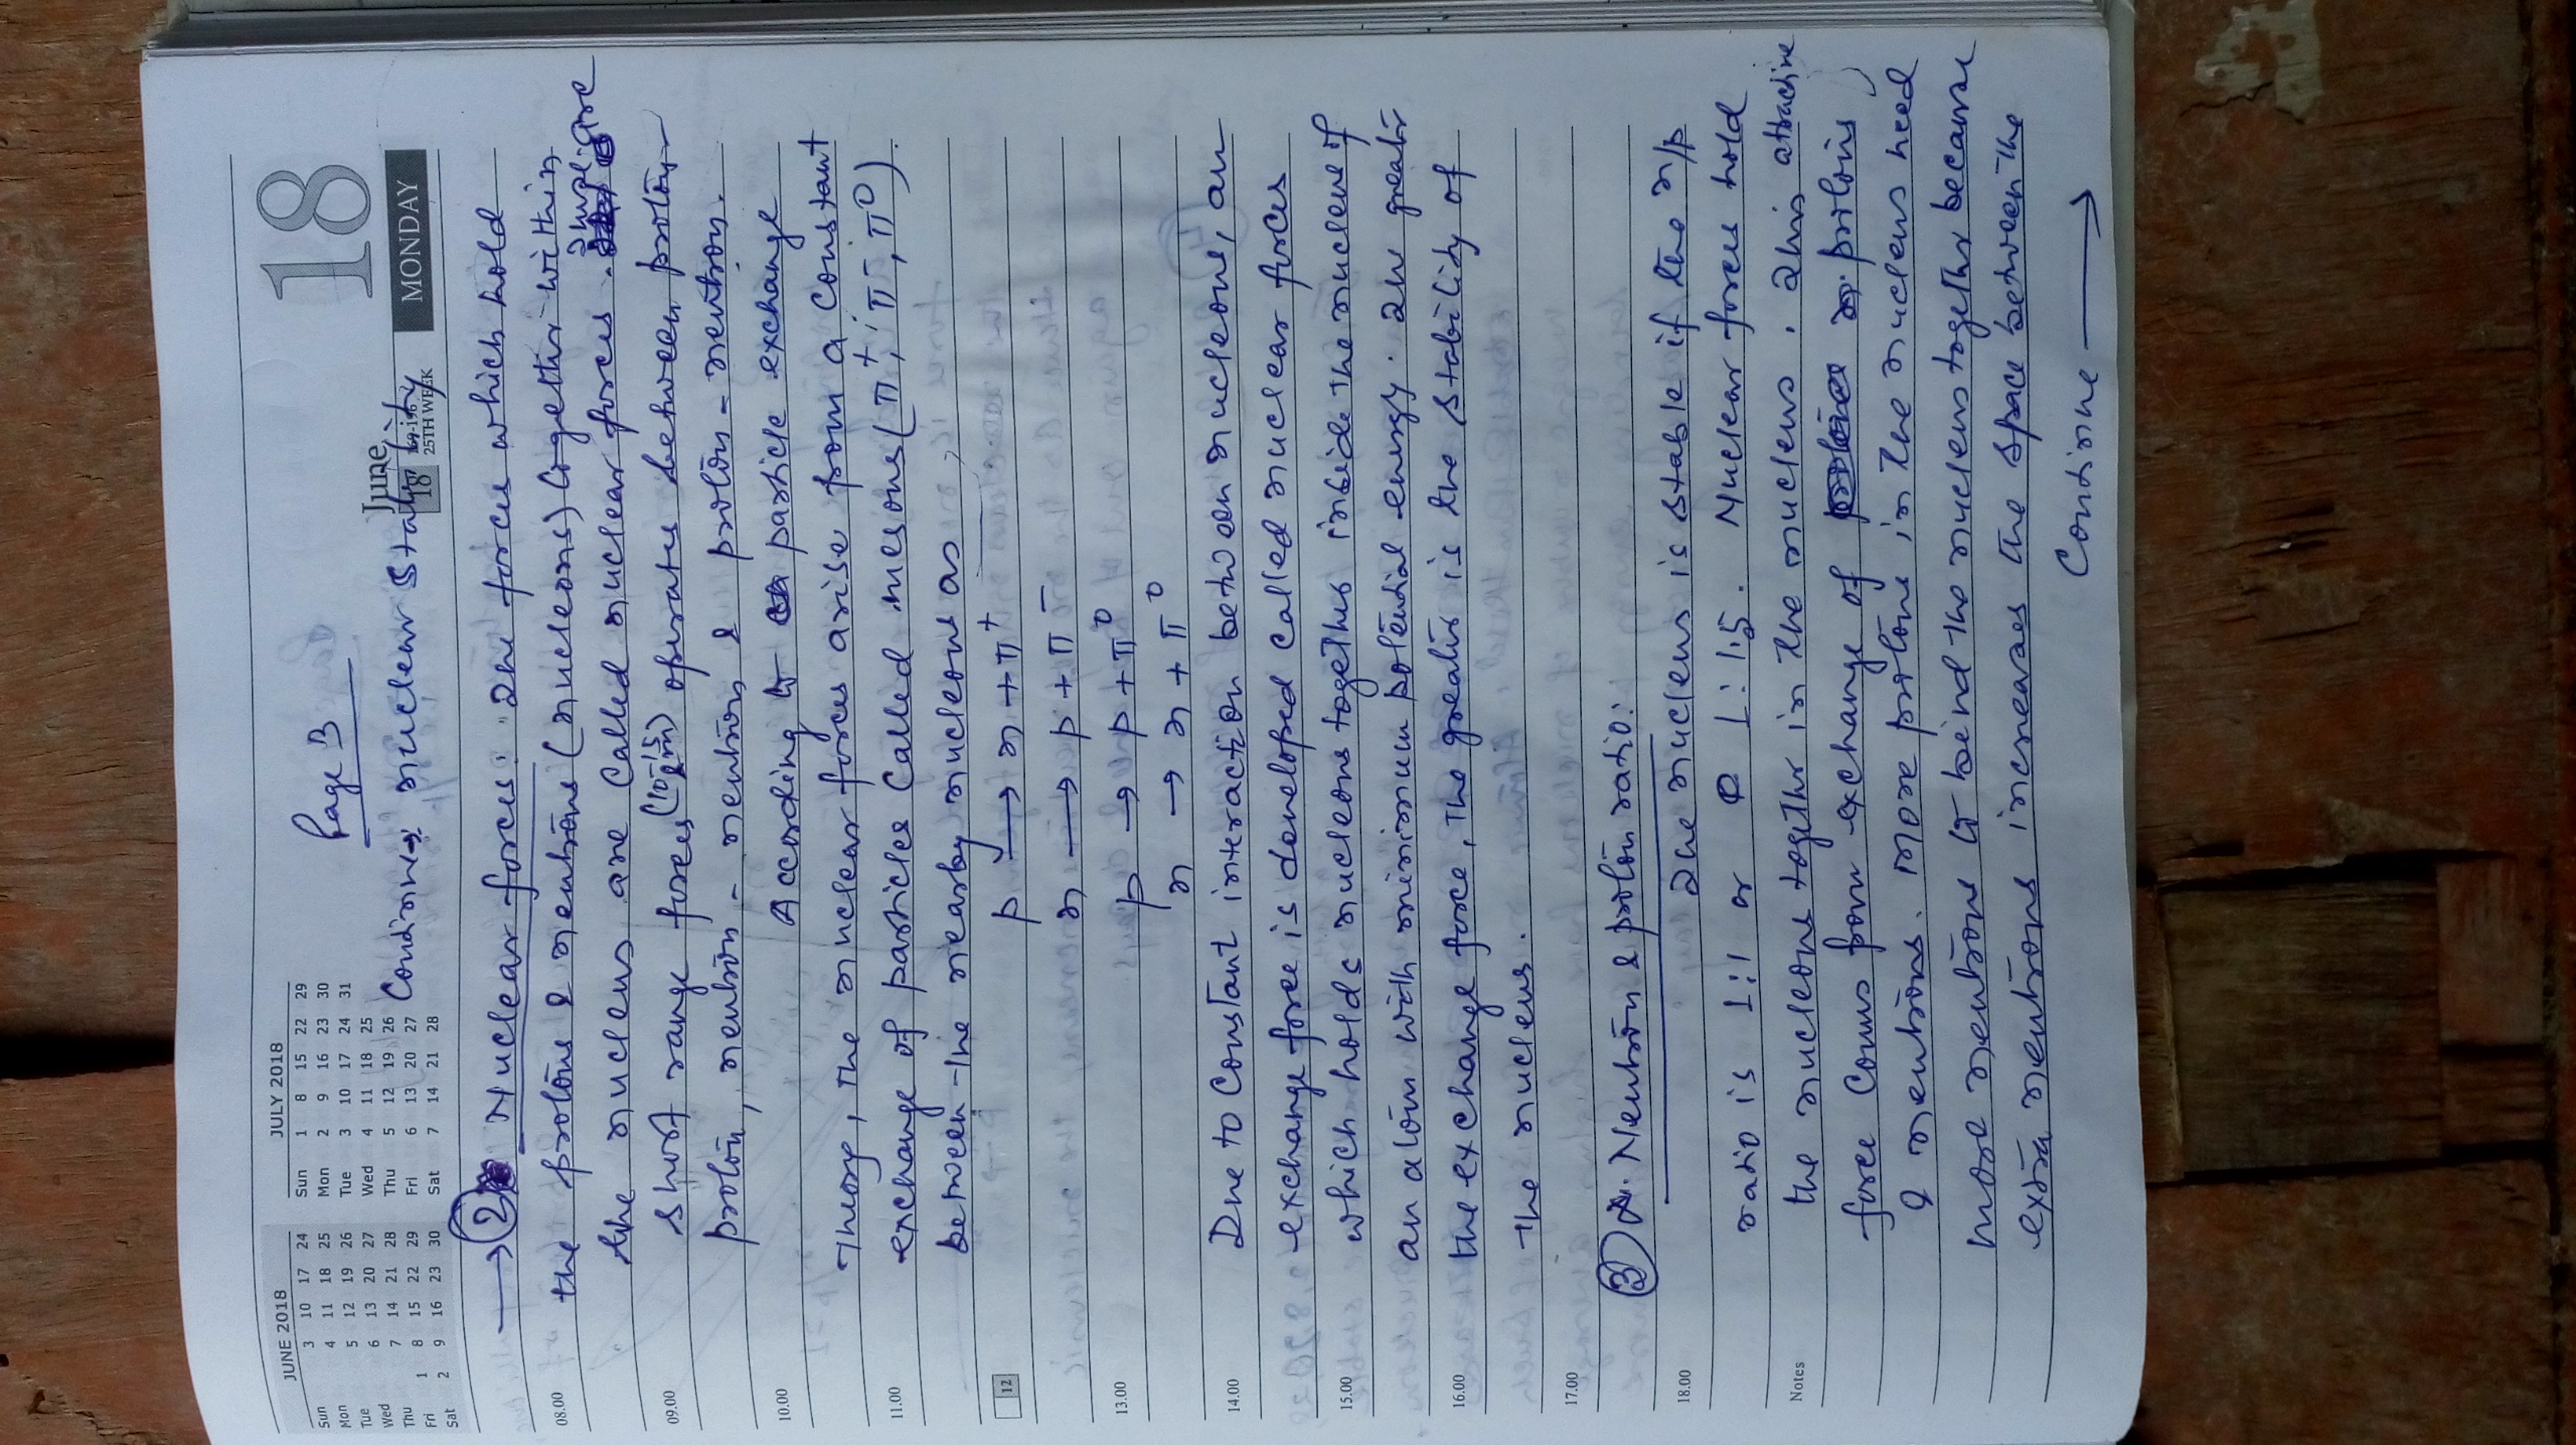 JUNE 2018
Sun 3 10 17 24
Mon 4 11 18 25
Tue 5 12 19 26
Wed 6 13 20 27
Thu 7 14 21 28
Fri 1 8 15 22 29
Sat 2 9 16 23 30
JULY 2018
Sun 1 8 15 22 29
Mon 2 9 16 23 30
Tue 3 10 17 24 31
Wed 4 11 18 25
Thu 5 12 19 26
Fri 6 13 20 27
Sat 7 14 21 28
Page 3
June
18
18 169-196
25TH WEEK
MONDAY
Continue → nuclear stability
→ ② Nuclear forces: The forces which hold
08.00 the protons & neutrons (nucleons) together within
the nucleus are called nuclear forces. These are
09.00 short range forces (10⁻¹⁵ m) operates between proton
proton, neutron - neutron & proton - neutron.
10.00 According to particle exchange
theory, the nuclear forces arise from a constant
11.00 exchange of particles called mesons (π⁺, π⁻, π⁰).
between the nearby nucleons as
12 p → n + π⁺
n → p + π⁻
13.00 p → p + π⁰
n → n + π⁰
14.00 Due to constant interaction between nucleons, an
exchange force is developed called nuclear forces
15.00 which holds nucleons together inside the nucleus of
an atom with minimum potential energy. The greater
16.00 the exchange force, the greater is the stability of
the nucleus.
17.00
③ Neutron & proton ratio:
18.00 The nucleus is stable if the n/p
ratio is 1:1 or 1:1.5. Nuclear forces hold
Notes the nucleons together in the nucleus. This attractive
force comes from exchange of π. protons
& neutrons. More protons in the nucleus need
more neutrons to bind the nucleus together because
extra neutrons increases the space between the
Continue →